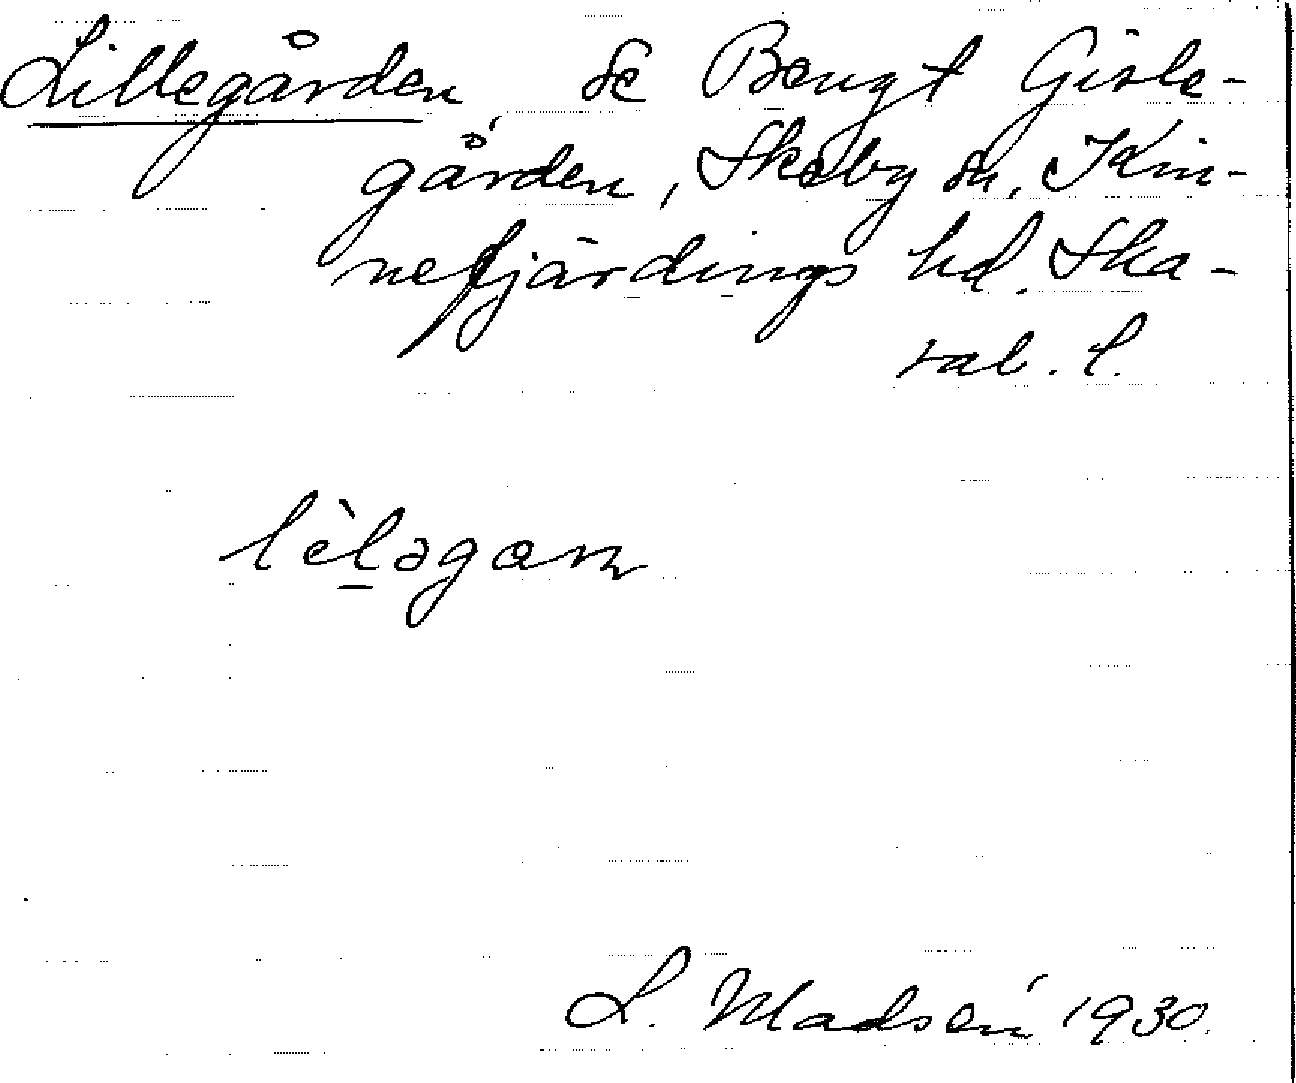 Lillegården se Bengt Gisle-
gården, Skeby sn, Kin-
nefjärdings hd. Ska-
rab. l.
lèlagaɳ
L. Madsén 1930.